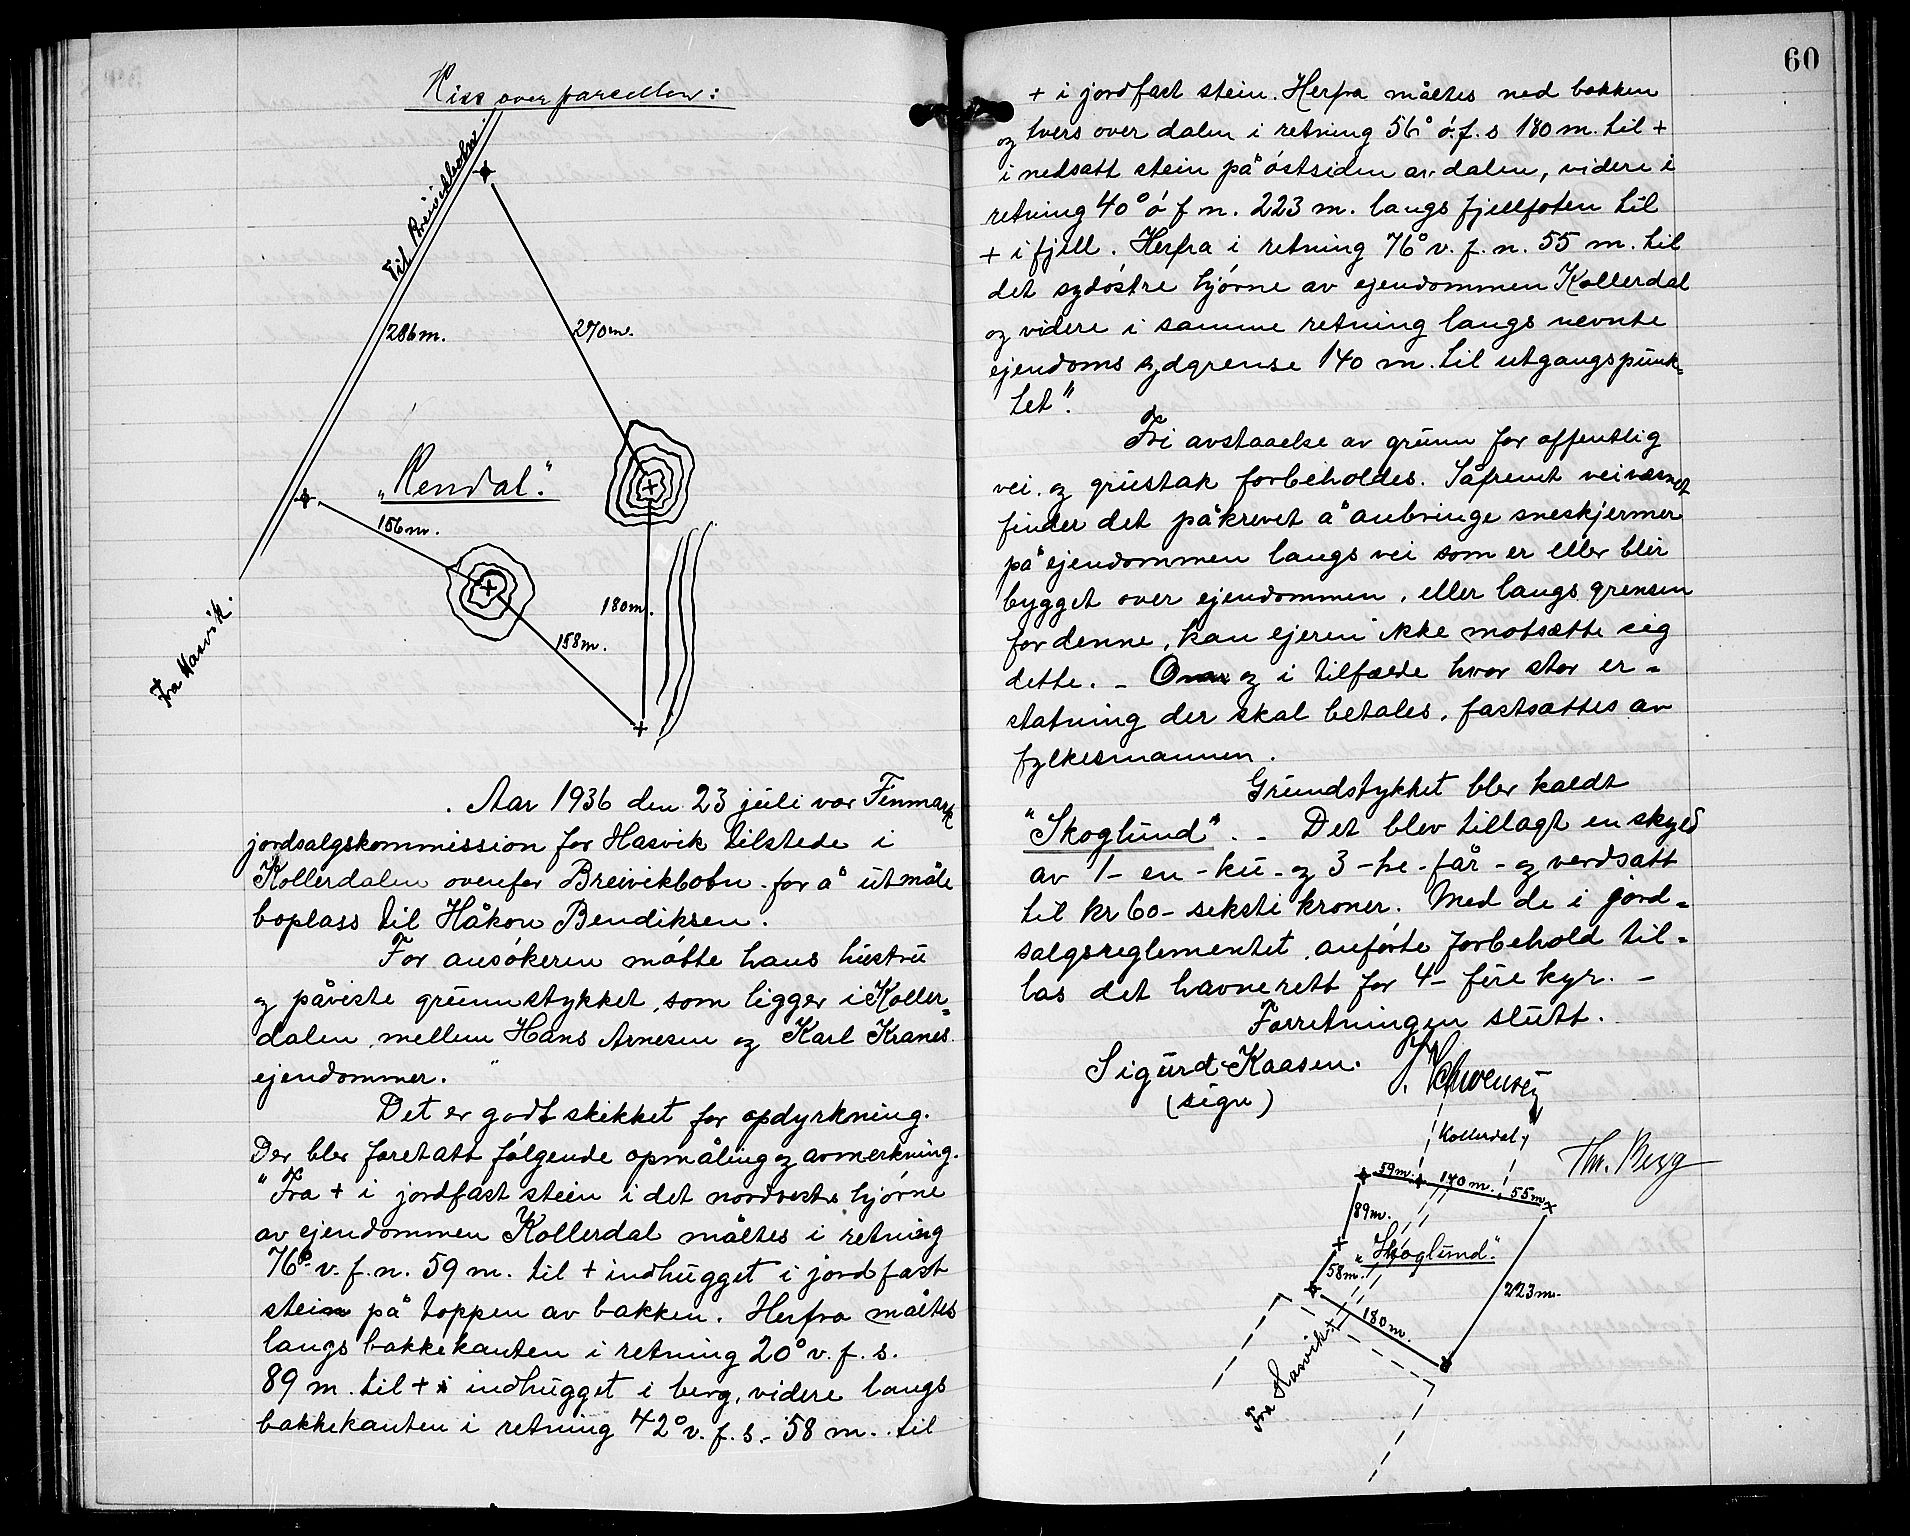 Riss over parcellen:
Til Breivikbotn.
286m.
270m.
"Rendal."
156m.
180m.
158m.
Fra Hasvik.
Aar 1936 den 23 juli var Finmark
jordsalgskommission for Hasvik tilstede i
Kollerdalen ovenfor Breivikbotn for å utmåle
boplass til Håkon Bendiksen.
For ansøkeren møtte hans hustru
og påviste grunnstykket, som ligger i Koller=
dalen, mellem Hans Arnesen og Karl Kranes
ejendommer.
Det er godt skikket for opdyrkning.
Der blev foretatt følgende opmåling og avmerkning.
"Fra + i jordfast stein i det nordvestre hjørne
av ejendommen Kollerdal måltes i retning
76° v.f.n. 59 m. til + indhugget i jordfast
stein på toppen av bakken. Herfra måltes
langs bakkekanten i retning 20° v.f.s.
89 m. til + indhugget i berg, videre langs
bakkekanten i retning 42° v.f.s. 58 m. til
60
+ i jordfast stein. Herfra måltes ned bakken
og tvers over dalen i retning 56° ø.f.s 180 m. til +
i nedsatt stein på østsiden av dalen, videre i
retning 40° ø f n. 223 m. langs fjellfoten til
+ i fjell. Herfra i retning 76° v.f.n. 55 m. til
det sydøstre hjørne av ejendommen Kollerdal
og videre i samme retning langs nevnte
ejendoms sydgrense 140 m. til utgangspunk=
tet".
Fri avstaaelse av grunn for offentlig
vei og grustak forbeholdes. Såfremt veivæsnet
finder det påkrevet å anbringe sneskjermer
på ejendommen langs vei som er eller blir
bygget over ejendommen, eller langs grensen
for denne, kan ejeren ikke motsætte sig
dette. - Om og i tilfælde hvor stor er=
statning der skal betales, fastsættes av
fylkesmannen.
Grundstykket blev kaldt
"Skoglund". - Det blev tillagt en skyld
av 1 - en - ku - og 3 - tre - får - og verdsatt
til kr 60 - seksti kroner. Med de i jord=
salgsreglementet anførte forbehold til=
las det havnerett for 4 - fire kyr. -
Forretningen slutt.
Sigurd Kaasen.
(sign)
Kollerdal
Thr. Berg
59m.
140m.
55m
89m.
"Skoglund."
58m.
223m.
180m.
Fra Hasvik